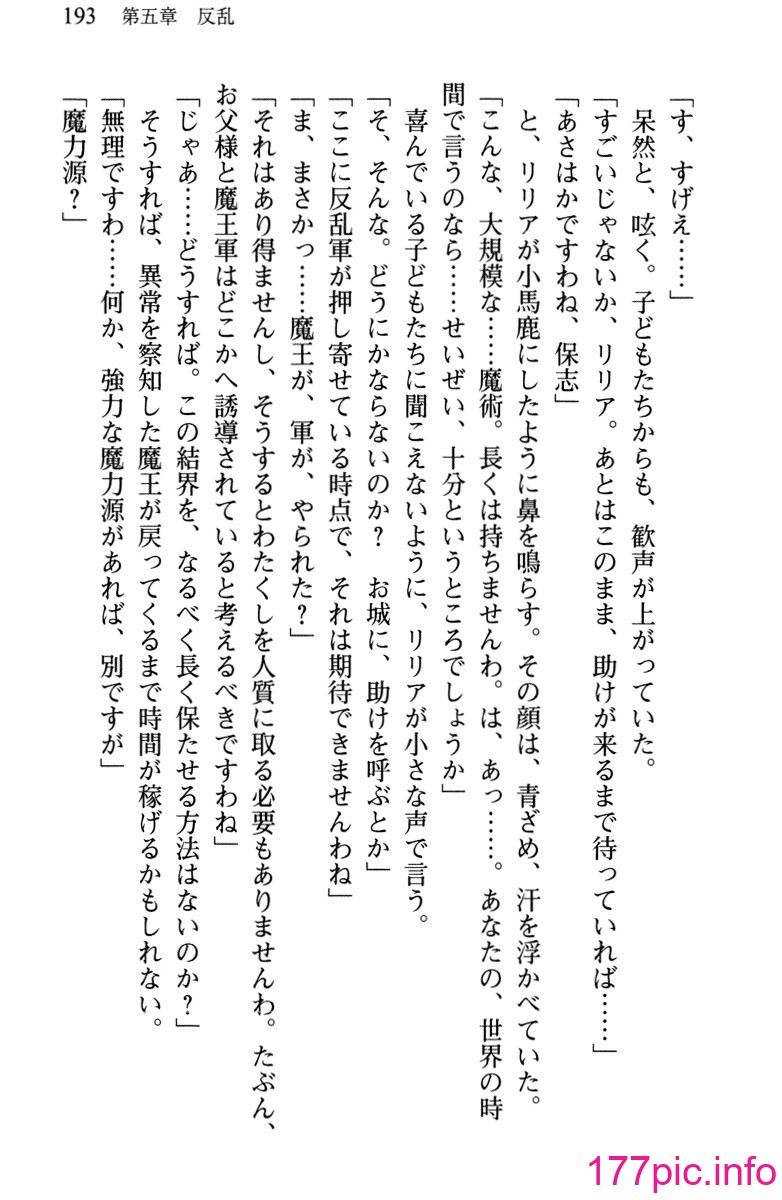 193　第五章　反乱
「す、すげえ……」
　呆然と、呟く。子どもたちからも、歓声が上がっていた。
「すごいじゃないか、リリア。あとはこのまま、助けが来るまで待っていれば……」
「あさはかですわね、保志」
　と、リリアが小馬鹿にしたように鼻を鳴らす。その顔は、青ざめ、汗を浮かべていた。
「こんな、大規模な……魔術。長くは持ちませんわ。は、あっ……。あなたの、世界の時
間で言うのなら……せいぜい、十分というところでしょうか」
　喜んでいる子どもたちに聞こえないように、リリアが小さな声で言う。
「そ、そんな。どうにかならないのか？　お城に、助けを呼ぶとか」
「ここに反乱軍が押し寄せている時点で、それは期待できませんわね」
「ま、まさかっ……魔王が、軍が、やられた？」
「それはあり得ませんし、そうするとわたくしを人質に取る必要もありませんわ。たぶん、
お父様と魔王軍はどこかへ誘導されていると考えるべきですわね」
「じゃあ……どうすれば。この結界を、なるべく長く保たせる方法はないのか？」
　そうすれば、異常を察知した魔王が戻ってくるまで時間が稼げるかもしれない。
「無理ですわ……何か、強力な魔力源があれば、別ですが」
「魔力源？」
177pic.info